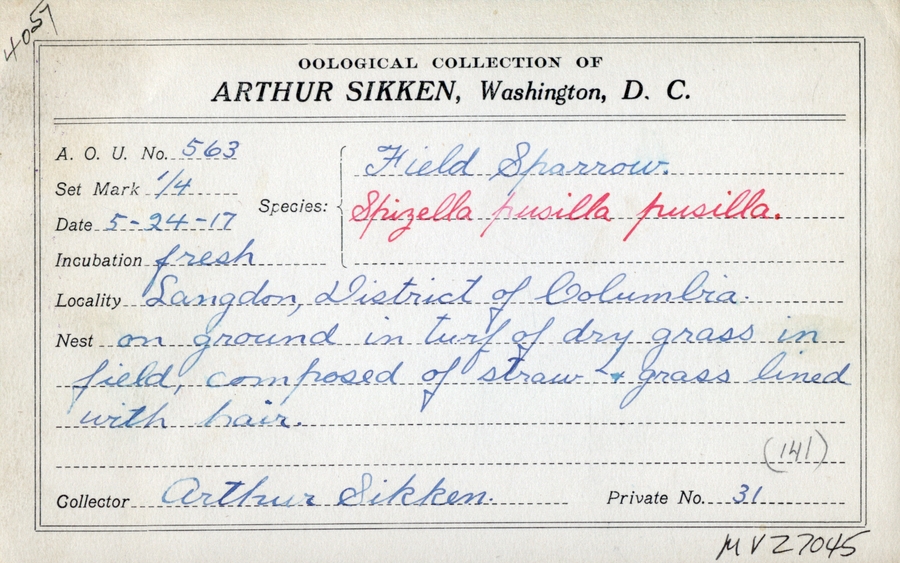 4057
OOLOGICAL COLLECTION OF
ARTHUR SIKKEN, Washington, D. C.
A. O. U. No. 563
Set Mark 1/4
Date 5-24-17
Incubation fresh
Species: Field Sparrow.
Spizella pusilla pusilla.
Locality Langdon, District of Columbia.
Nest on ground in turf of dry grass in
field, composed of straw & grass lined
with hair.
(141)
Collector Arthur Sikken. Private No. 31
MVZ7045